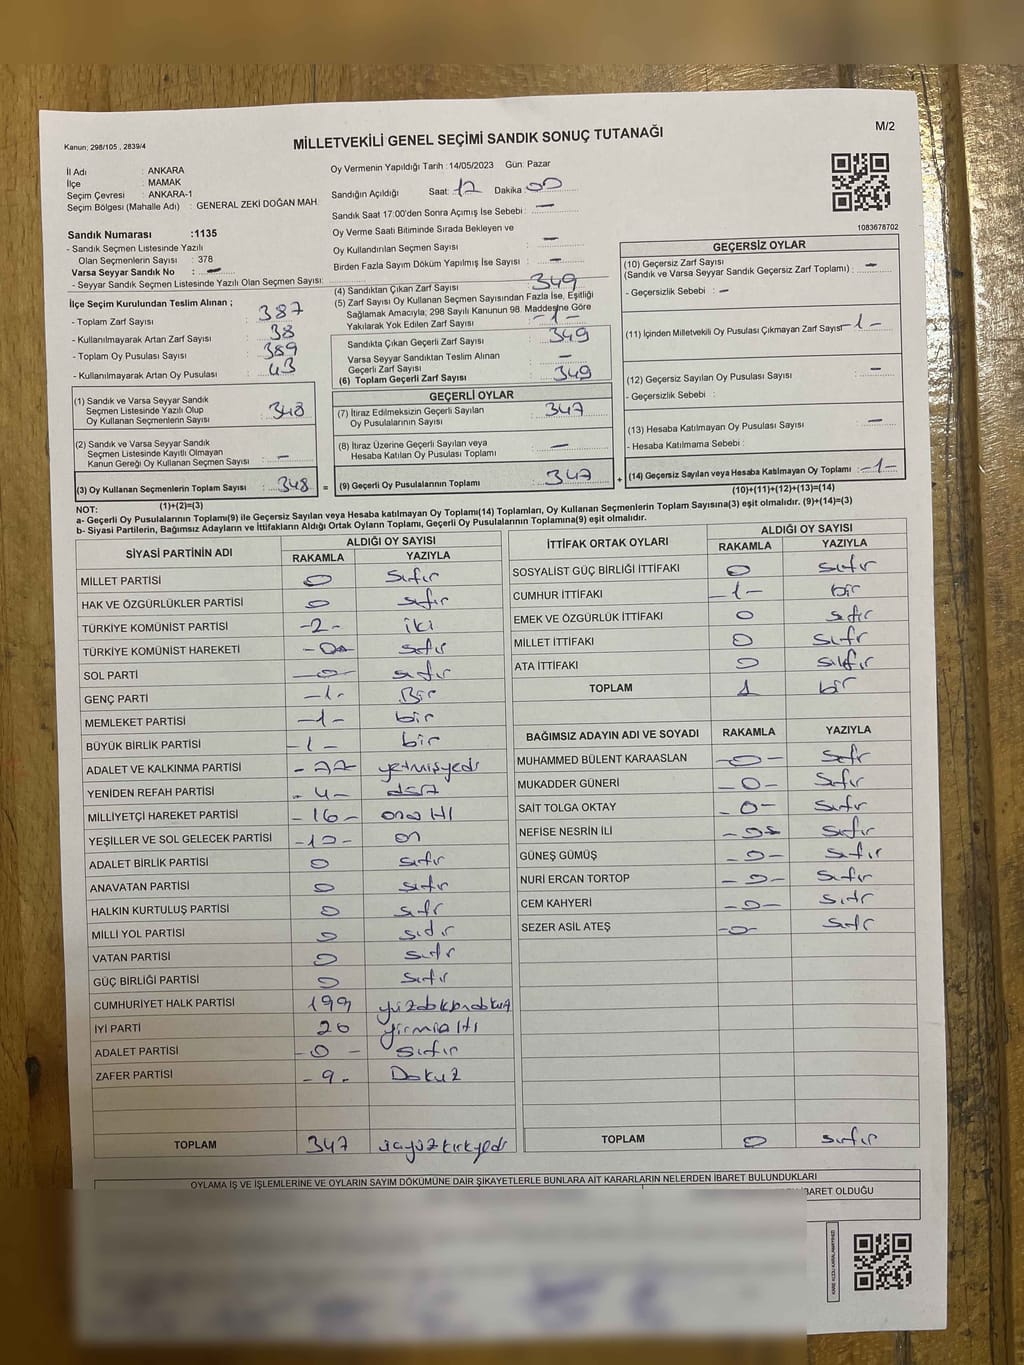 M/2
Kanun: 298/105 , 2839/4
MİLLETVEKİLİ GENEL SEÇİMİ SANDIK SONUÇ TUTANAĞI
İl Adı : ANKARA
İlçe : MAMAK
Seçim Çevresi : ANKARA-1
Seçim Bölgesi (Mahalle Adı) : GENERAL ZEKİ DOĞAN MAH.
Oy Vermenin Yapıldığı Tarih : 14/05/2023 Gün: Pazar
Sandığın Açıldığı Saat: 17 Dakika 00
Sandık Saat 17:00'den Sonra Açımış İse Sebebi : —
Oy Verme Saati Bitiminde Sırada Bekleyen ve
Oy Kullandırılan Seçmen Sayısı —
Birden Fazla Sayım Döküm Yapılmış İse Sayısı : —
1083678702
Sandık Numarası :1135
- Sandık Seçmen Listesinde Yazılı
Olan Seçmenlerin Sayısı : 378
Varsa Seyyar Sandık No : —
- Seyyar Sandık Listesinde Yazılı Olan Seçmen Sayısı:
İlçe Seçim Kurulundan Teslim Alınan ;
- Toplam Zarf Sayısı : 387
- Kullanılmayarak Artan Zarf Sayısı : 38
- Toplam Oy Pusulası Sayısı : 389
- Kullanılmayarak Artan Oy Pusulası : 43
(1) Sandık ve Varsa Seyyar Sandık
Seçmen Listesinde Yazılı Olup
Oy Kullanan Seçmenlerin Sayısı : 348
(2) Sandık ve Varsa Seyyar Sandık
Seçmen Listesinde Kayıtlı Olmayan
Kanun Gereği Oy Kullanan Seçmen Sayısı : —
(3) Oy Kullanan Seçmenlerin Toplam Sayısı : 348 =
(1)+(2)=(3)
(4) Sandıktan Çıkan Zarf Sayısı : 349
(5) Zarf Sayısı Oy Kullanan Seçmen Sayısından Fazla İse, Eşitliği
Sağlamak Amacıyla; 298 Sayılı Kanunun 98. Maddesine Göre
Yakılarak Yok Edilen Zarf Sayısı : -1-
Sandıkta Çıkan Geçerli Zarf Sayısı : 349
Varsa Seyyar Sandıktan Teslim Alınan
Geçerli Zarf Sayısı : —
(6) Toplam Geçerli Zarf Sayısı : 349
GEÇERLİ OYLAR
(7) İtiraz Edilmeksizin Geçerli Sayılan
Oy Pusulalarının Sayısı : 347
(8) İtiraz Üzerine Geçerli Sayılan veya
Hesaba Katılan Oy Pusulası Toplamı : —
(9) Geçerli Oy Pusulalarının Toplamı : 347 +
GEÇERSİZ OYLAR
(10) Geçersiz Zarf Sayısı
(Sandık ve Varsa Seyyar Sandık Geçersiz Zarf Toplamı) : —
- Geçersizlik Sebebi : —
(11) İçinden Milletvekili Oy Pusulası Çıkmayan Zarf Sayısı -1-
(12) Geçersiz Sayılan Oy Pusulası Sayısı : —
- Geçersizlik Sebebi :
(13) Hesaba Katılmayan Oy Pusulası Sayısı : —
- Hesaba Katılmama Sebebi :
(14) Geçersiz Sayılan veya Hesaba Katılmayan Oy Toplamı : -1-
(10)+(11)+(12)+(13)=(14)
NOT:
a- Geçerli Oy Pusulalarının Toplamı(9) ile Geçersiz Sayılan veya Hesaba katılmayan Oy Toplamı(14) Toplamları, Oy Kullanan Seçmenlerin Toplam Sayısına(3) eşit olmalıdır. (9)+(14)=(3)
b- Siyasi Partilerin, Bağımsız Adayların ve İttifakların Aldığı Ortak Oyların Toplamı, Geçerli Oy Pusulalarının Toplamına(9) eşit olmalıdır.
SİYASİ PARTİNİN ADI ALDIĞI OY SAYISI
RAKAMLA YAZIYLA
MİLLET PARTİSİ 0 sıfır
HAK VE ÖZGÜRLÜKLER PARTİSİ 0 sıfır
TÜRKİYE KOMÜNİST PARTİSİ -2- iki
TÜRKİYE KOMÜNİST HAREKETİ -0- sıfır
SOL PARTİ -0- sıfır
GENÇ PARTİ -1- Bir
MEMLEKET PARTİSİ -1- bir
BÜYÜK BİRLİK PARTİSİ -1- bir
ADALET VE KALKINMA PARTİSİ -77- yetmişyedi
YENİDEN REFAH PARTİSİ -4- dört
MİLLİYETÇİ HAREKET PARTİSİ -16- onaltı
YEŞİLLER VE SOL GELECEK PARTİSİ -10- on
ADALET BİRLİK PARTİSİ 0 sıfır
ANAVATAN PARTİSİ 0 sıfır
HALKIN KURTULUŞ PARTİSİ 0 sıfır
MİLLİ YOL PARTİSİ 0 sıfır
VATAN PARTİSİ 0 sıfır
GÜÇ BİRLİĞİ PARTİSİ 0 sıfır
CUMHURİYET HALK PARTİSİ 199 yüzdoksandokuz
İYİ PARTİ 26 yirmialtı
ADALET PARTİSİ -0- sıfır
ZAFER PARTİSİ -9- Dokuz
TOPLAM 347 üçyüzkırkyedi
İTTİFAK ORTAK OYLARI ALDIĞI OY SAYISI
RAKAMLA YAZIYLA
SOSYALİST GÜÇ BİRLİĞİ İTTİFAKI 0 sıfır
CUMHUR İTTİFAKI -1- bir
EMEK VE ÖZGÜRLÜK İTTİFAKI 0 sıfır
MİLLET İTTİFAKI 0 sıfır
ATA İTTİFAKI 0 sıfır
TOPLAM 1 bir
BAĞIMSIZ ADAYIN ADI VE SOYADI RAKAMLA YAZIYLA
MUHAMMED BÜLENT KARAASLAN -0- sıfır
MUKADDER GÜNERİ -0- sıfır
SAİT TOLGA OKTAY -0- sıfır
NEFİSE NESRİN İLİ -0- sıfır
GÜNEŞ GÜMÜŞ -0- sıfır
NURİ ERCAN TORTOP -0- sıfır
CEM KAHYERİ -0- sıfır
SEZER ASİL ATEŞ -0- sıfır
TOPLAM 0 sıfır
OYLAMA İŞ VE İŞLEMLERİNE VE OYLARIN SAYIM DÖKÜMÜNE DAİR ŞİKAYETLERLE BUNLARA AİT KARARLARIN NELERDEN İBARET BULUNDUKLARI
İBARET OLDUĞU